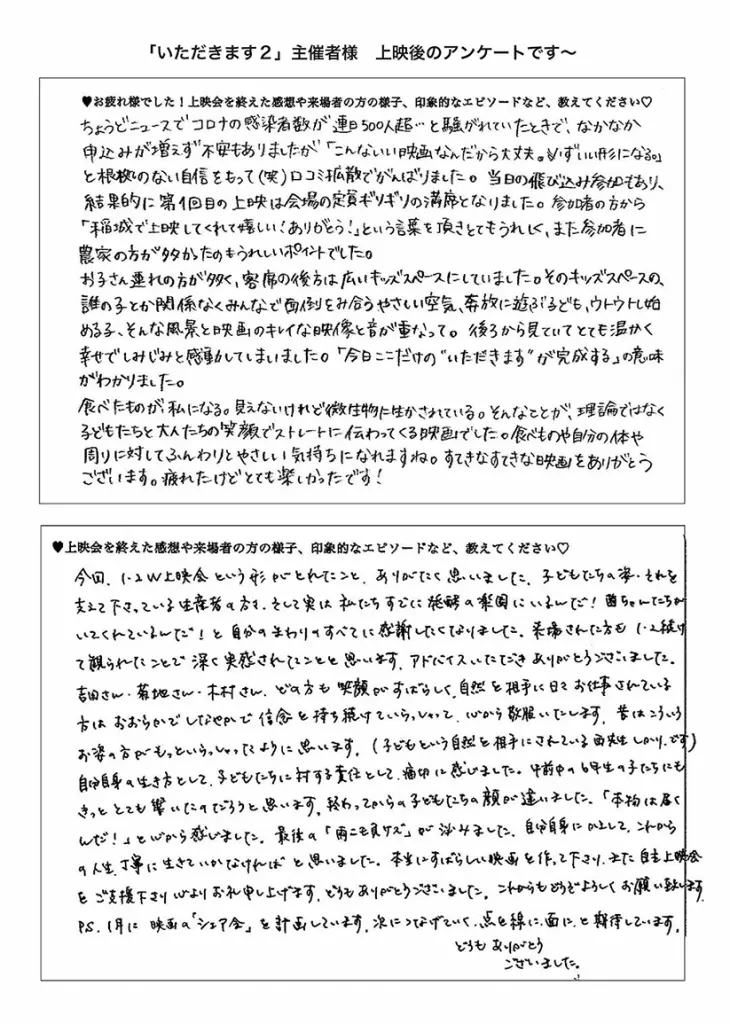 「いただきます２」主催者様　上映後のアンケートです～
♥お疲れ様でした！上映会を終えた感想や来場者の方の様子、印象的なエピソードなど、教えてください♡
ちょうどニュースでコロナの感染者数が連日500人超…と騒がれていたときで、なかなか
申込みが増えず不安もありましたが「こんないい映画なんだから大丈夫。必ずいい形になる。」
と根拠のない自信をもって(笑)口コミ拡散でがんばりました。当日の飛び込み参加もあり、
結果的に第1回目の上映は会場の定員ギリギリの満席となりました。参加者の方から
「稲城で上映してくれて嬉しい！ありがとう！」という言葉を頂きとてもうれしく、また参加者に
農家の方が多かったのもうれしいポイントでした。
お子さん連れの方が多く、客席の後方は広いキッズスペースにしていました。そのキッズスペースの、
誰の子とか関係なくみんなで面倒をみ合うやさしい空気、奔放に遊ぶ子ども、ウトウトし始
める子、そんな風景と映画のキレイな映像と音が重なって。後ろから見ていてとても温かく
幸せでしみじみと感動してしまいました。「今日ここだけの"いただきます"が完成する」の意味
がわかりました。
食べたものが、私になる。見えないけれど微生物に生かされている。そんなことが、理論ではなく
子どもたちと大人たちの笑顔でストレートに伝わってくる映画でした。食べものや自分の体や
周りに対してふんわりとやさしい気持ちになれますね。すてきなすてきな映画をありがとう
ございます。疲れたけどとても楽しかったです！
♥上映会を終えた感想や来場者の方の様子、印象的なエピソードなど、教えてください♡
今回、1・2 W上映会という形がとれたこと、ありがたく思いました。子どもたちの姿・それを
支えて下さっている生産者の方々、そして実は私たちすでに発酵の楽園にいるんだ！菌ちゃんたちが
いてくれているんだ！と自分のまわりのすべてに感謝したくなりました。来場された方も 1・2続け
て観られたことで深く実感されたことと思います。アドバイスいただきありがとうございました。
吉田さん・菊地さん・木村さん、どの方も笑顔がすばらしく、自然を相手に日々お仕事されている
方はおおらかでしなやかで信念を持ち続けていらっしゃって、心から敬服いたします。昔はこういう
お姿の方がもっといらっしゃったように思います。(子どもという自然を相手にされている西先生しかり、です)
自分自身の生き方として、子どもたちに対する責任として、痛切に感じました。午前中の6年生の子たちにも
きっととても響いたのだろうと思います。終わってからの子どもたちの顔が違いました。「本物は届く
んだ！」と心から感じました。最後の「雨ニモ負ケズ」が沁みました。自分自身にかえして、これから
の人生、丁寧に生きていかなければと思いました。本当にすばらしい映画を作って下さり、また自主上映会
をご支援下さり心よりお礼申し上げます。どうもありがとうございました。これからもどうぞよろしくお願い致します。
P.S. 1月に映画の「シェア会」を計画しています。次につなげていく、点を線に、面に、と期待しています。
どうもありがとう
ございました。